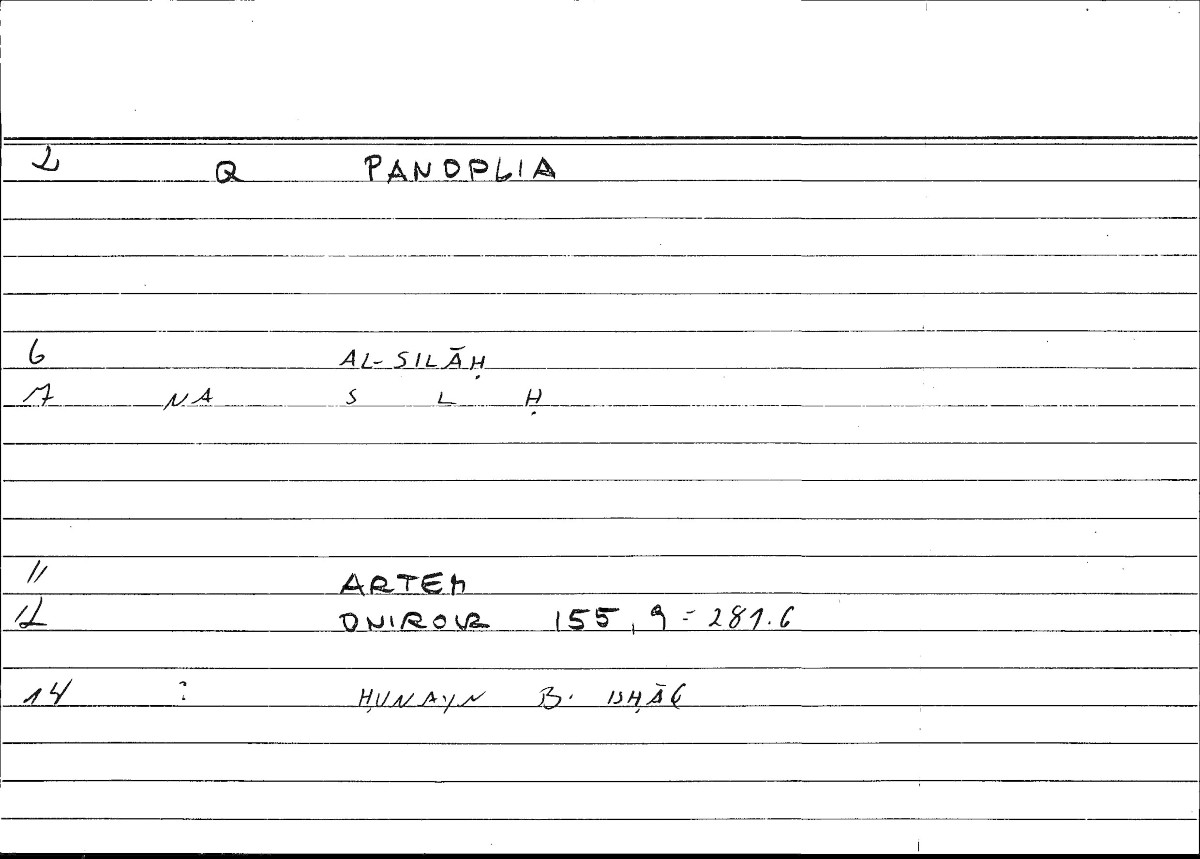 2 Q PANOPLIA
6 AL-SILĀḤ
7 NA S L Ḥ
11 ARTEM
12 ONIROCR 155, 9 = 281.6
14 : ḤUNAYN B. ISḤĀQ